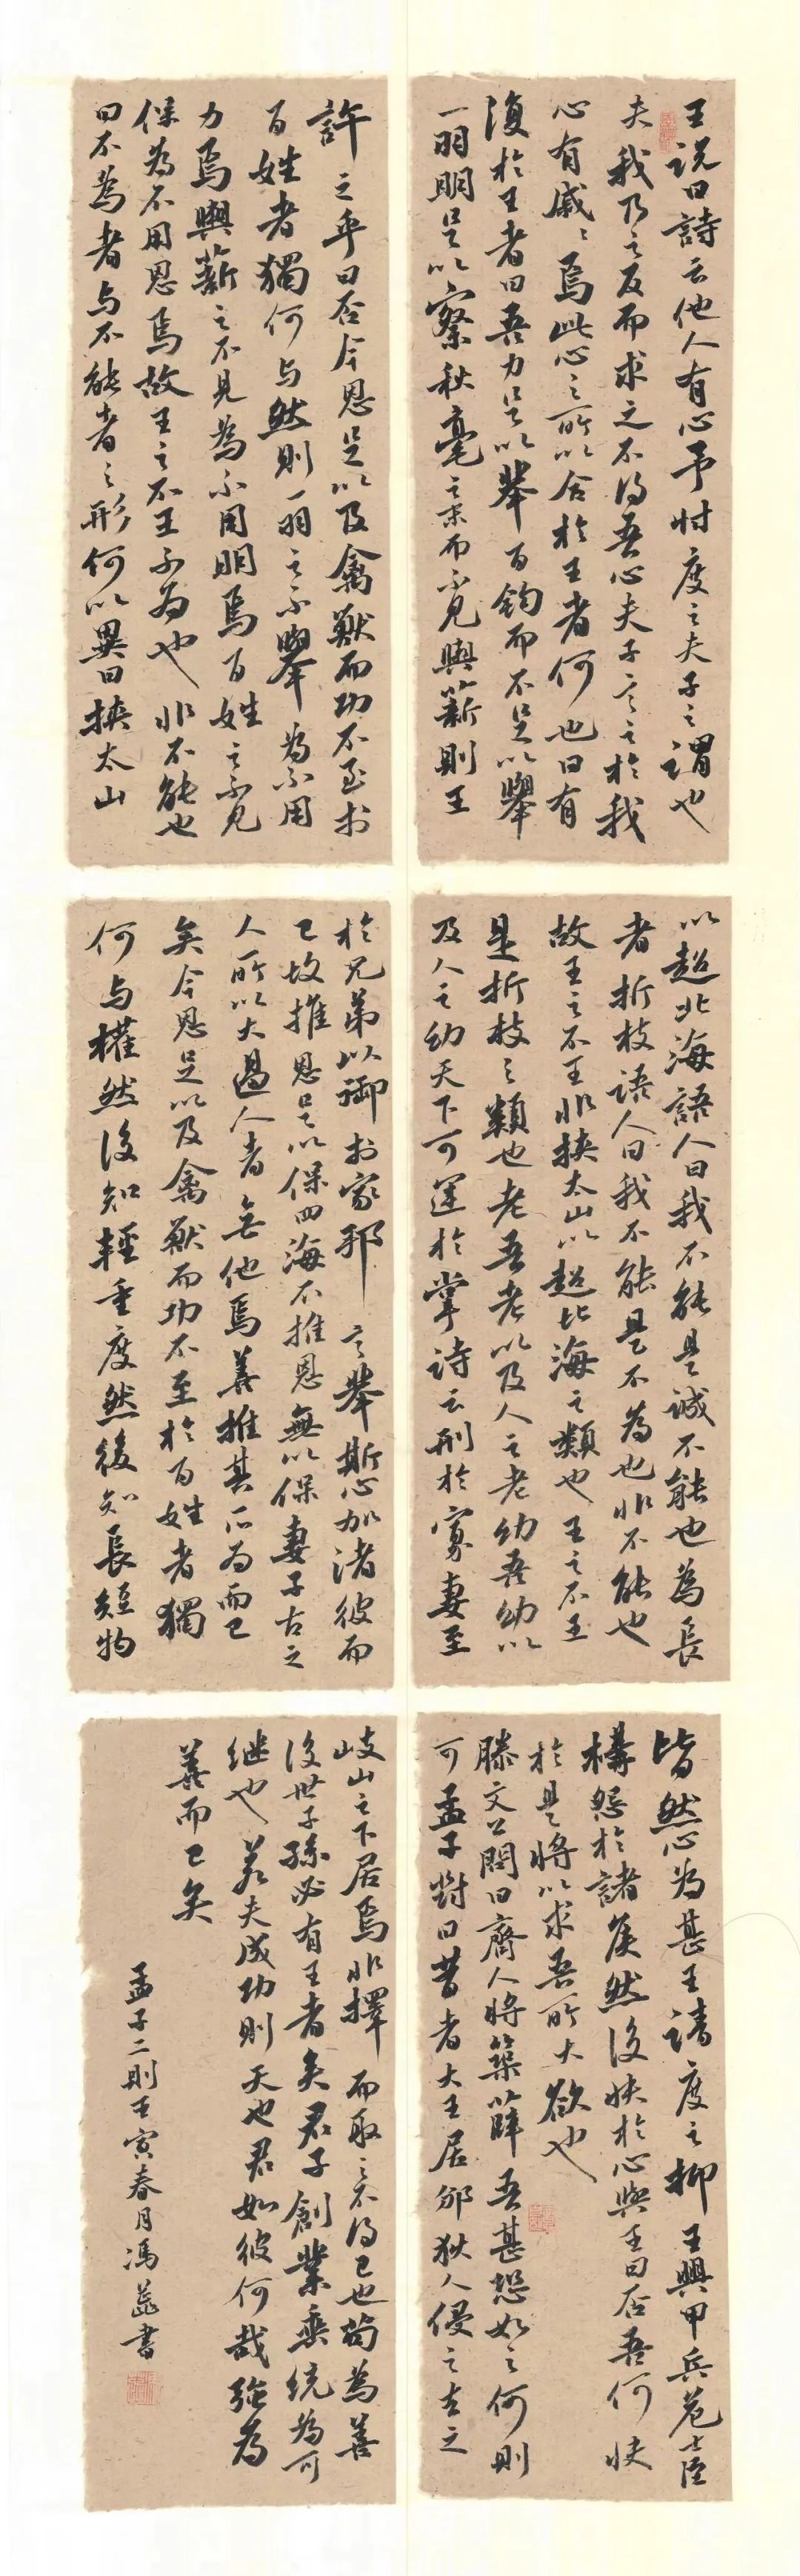 王说曰詩云他人有心予忖度之夫子之謂也
夫我乃之反而求之不得吾心夫子言之於我
心有戚戚焉此心之所以合於王者何也曰有
復於王者曰吾力足以舉百鈞而不足以舉
一羽明足以察秋毫之末而不見輿薪則王
許之乎曰否今恩足以及禽獸而功不至於
百姓者獨何与然則一羽之不舉為不用
力焉輿薪之不見為不用明焉百姓之不見
保為不用恩焉故王之不王不為也非不能也
曰不為者与不能者之形何以異曰挾太山
以超北海語人曰我不能是誠不能也為長
者折枝語人曰我不能是不為也非不能也
故王之不王非挾太山以超北海之類也王之不王
是折枝之類也老吾老以及人之老幼吾幼以
及人之幼天下可運於掌詩云刑於寡妻至
於兄弟以御於家邦言舉斯心加渚彼而
已故推恩足以保四海不推恩無以保妻子古之
人所以大過人者無他焉善推其所为而已
矣今恩足以及禽獸而功不至於百姓者獨
何与權然後知輕重度然後知長短物
皆然心为甚王請度之抑王興甲兵危士臣
構怨於諸侯然後快於心與王曰否吾何快
於是將以求吾所大欲也
滕文公問曰齊人將築薛吾甚恐如之何則
可孟子對曰昔者大王居邠狄人侵之去之
岐山之下居焉非擇而取之不得已也苟為善
後世子孫必有王者矣君子創業垂统為可
继也若夫成功則天也君如彼何哉强為
善而已矣
孟子二則壬寅春月馮蕊書